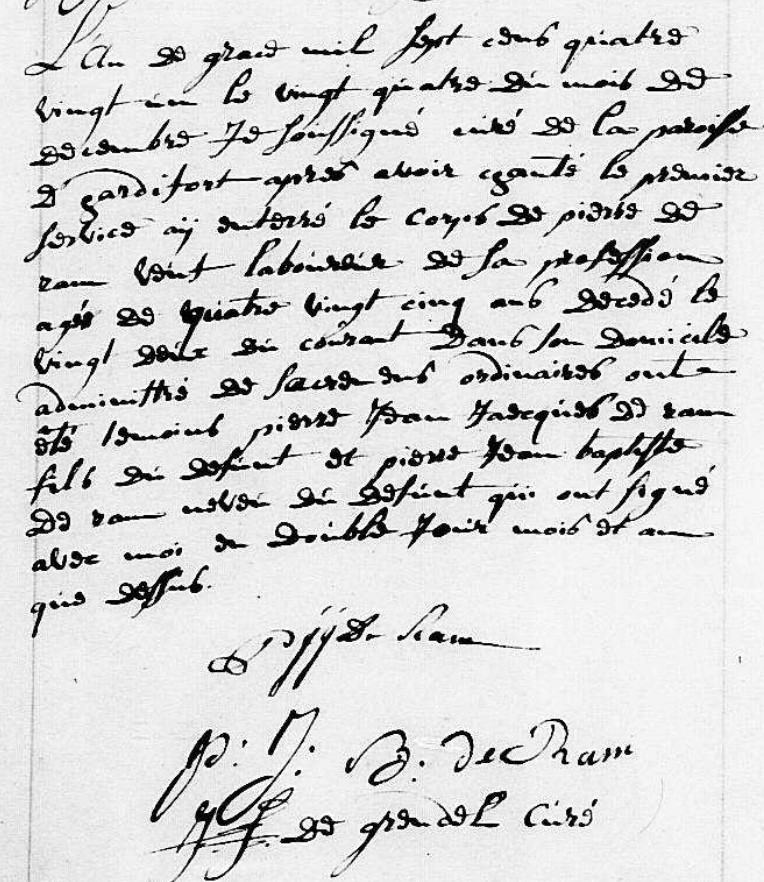 L'An de grace mil sept cens quatre
vingt un le vingt quatre du mois de
decembre Je soussigné curé de la paroisse
d gardifort apres avoir chanté le premier
service aij enterré le corps de pierre de
ram veuf laboureur de sa profession
agés de quatre vingt cinq ans decedé le
vingt deux du courant dans son domicile
administré de sacremens ordinaires ont
été temoins pierre Jean Jacques de ram
fils du defunt et pierre Jean baptiste
de ram neveu du defunt qui ont signé
avec moi en double Jour mois et an
que dessus.
de Ram
p: J: B: de Ram
de grendel Curé